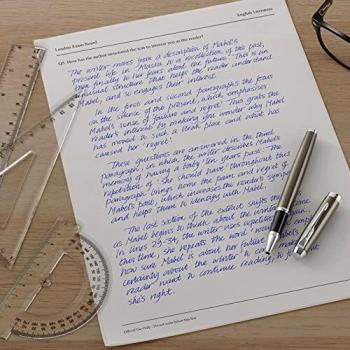 London Exam Board
English Literature
Q5. How has the author structured the text to interest you as the reader?
The writer moves from a description of Mabel's
present life in Alaska to a recollection of the past,
then finally to her fears about the future. This is an
unusual structure that helps the reader understand
Mabel, and so engages their interest.
In the first and second paragraphs the focus
on the silence of the present, which emphasises
Mabel's sense of 'failure and regret'. This grabs the
reader's interest by making you wonder why Mabel
has moved to such a bleak place and what has
caused her 'regret'.
These questions are answered in the third
paragraph, in which the writer describes Mabel's
memory of having a baby 'ten years past'. The
repetition of 'she should have' throughout this
paragraph brings home the pain and regret of
Mabel's past, which intensify
and helps them to identify with Mabel.
The last section of the extract shifts the
as Mabel begins to think about the winter
In lines 29-34, the writer uses repetition
this: she repeats the word 'would'
how sure Mabel is about her future
certainty about the winter to come makes
reader want to continue reading, to find out
she's right.